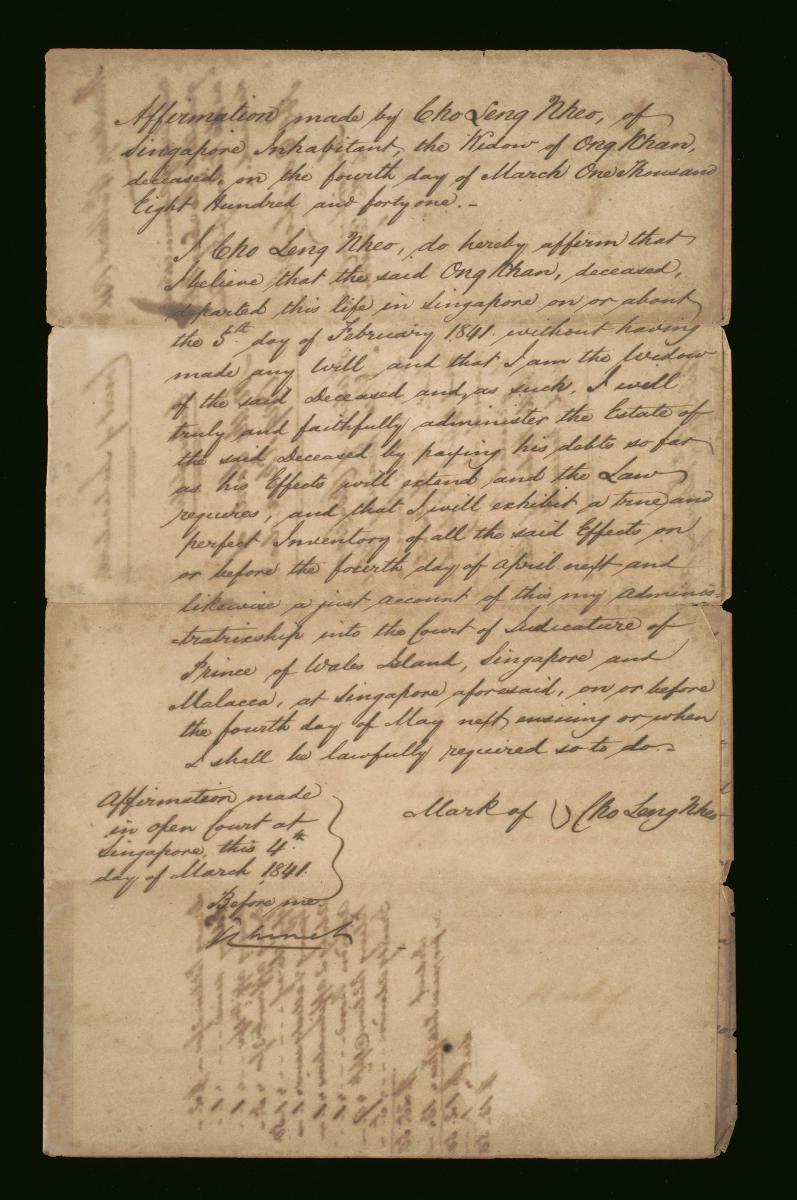 Affirmation made by Cho Leng Nheo, of
Singapore Inhabitant, the Widow of Ong Khan,
deceased, on the fourth day of March One Thousand
Eight Hundred and forty one.-
I Cho Leng Nheo, do hereby affirm that
I believe that the said Ong Khan, deceased,
departed this life in Singapore on or about
the 5th day of February 1841 without having
made any Will and that I am the Widow
of the said Deceased and, as such, I will
truly and faithfully administer the Estate of
the said Deceased by paying his debts so far
as his Effects will extend and the Law
requires, and that I will exhibit a true and
perfect Inventory of all the said Effects on
or before the fourth day of April next and
likewise a just account of this my Adminis-
-tratrixship into the Court of Judicature of
Prince of Wales Island, Singapore and
Malacca, at Singapore aforesaid, on or before
the fourth day of May next ensuing or when
I shall be lawfully required so to do.-
Affirmation made
in open Court at
Singapore, this 4th
day of March 1841.
Before me.
Mark of Cho Leng Nheo